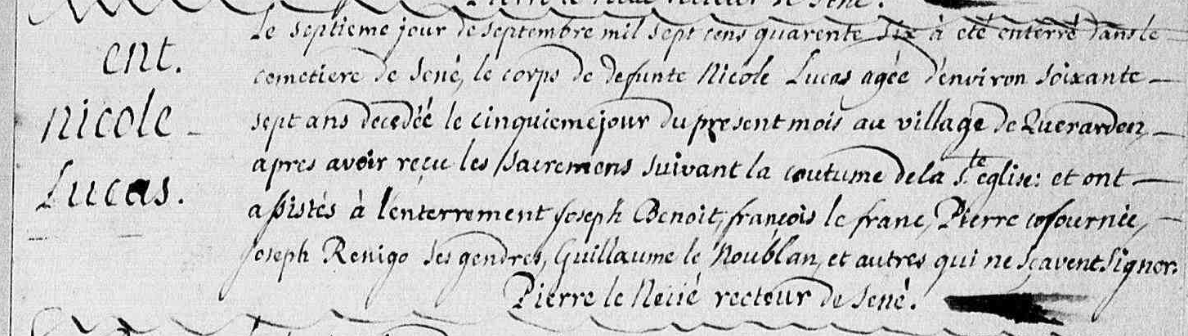 ent.
nicole
Lucas.
Le septieme jour de septembre mil sept cens quarente six à eté enterré dans le
cemetiere de Sené, le corps de defunte Nicole Lucas agée d'environ soixante
sept ans decedéé le cinquieme jour du present mois au village de Querarden
apres avoir reçu les sacremens suivant la coutume de la Ste église: et ont
assistés à l'enterrement Joseph Benoit, françois le franc, Pierre
Joseph Renigo ses gendres, Guillaume le Noublan, et autres qui ne sçavent signer.
Pierre le recteur de Sené.